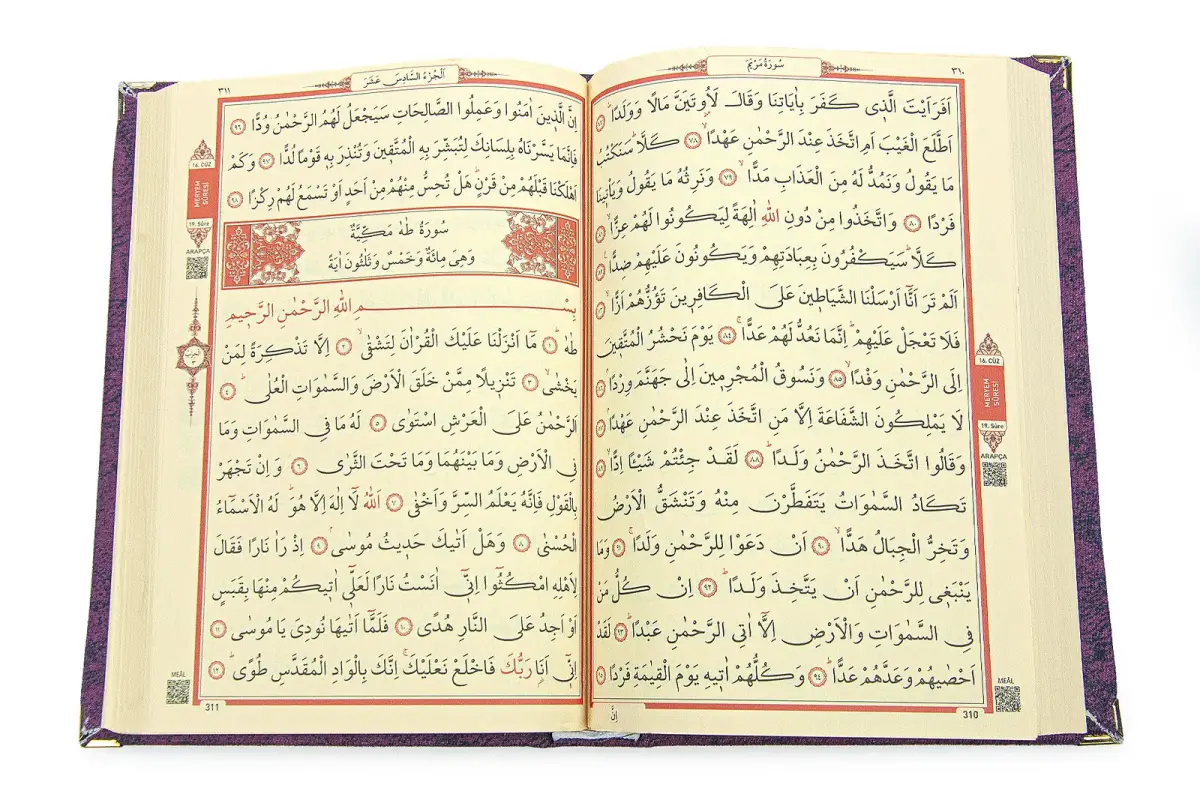 ٣١٠
سُورَةُ مَرْيَمَ
اَفَرَاَيْتَ الَّذ۪ي كَفَرَ بِاٰيَاتِنَا وَقَالَ لَاُو۫تَيَنَّ مَالًا وَوَلَدًاۜ ﴿٧٧﴾
اَطَّلَعَ الْغَيْبَ اَمِ اتَّخَذَ عِنْدَ الرَّحْمٰنِ عَهْدًاۙ ﴿٧٨﴾ كَلَّاۜ سَنَكْتُبُ
مَا يَقُولُ وَنَمُدُّ لَهُ مِنَ الْعَذَابِ مَدًّاۙ ﴿٧٩﴾ وَنَرِثُهُ مَا يَقُولُ وَيَأْت۪ينَا
فَرْدًا ﴿٨٠﴾ وَاتَّخَذُوا مِنْ دُونِ اللّٰهِ اٰلِهَةً لِيَكُونُوا لَهُمْ عِزًّاۙ ﴿٨١﴾
كَلَّاۜ سَيَكْفُرُونَ بِعِبَادَتِهِمْ وَيَكُونُونَ عَلَيْهِمْ ضِدًّا۟ ﴿٨٢﴾
اَلَمْ تَرَ اَنَّٓا اَرْسَلْنَا الشَّيَاط۪ينَ عَلَى الْكَافِر۪ينَ تَؤُزُّهُمْ اَزًّاۙ ﴿٨٣﴾
فَلَا تَعْجَلْ عَلَيْهِمْۜ اِنَّمَا نَعُدُّ لَهُمْ عَدًّاۚ ﴿٨٤﴾ يَوْمَ نَحْشُرُ الْمُتَّق۪ينَ
اِلَى الرَّحْمٰنِ وَفْدًاۙ ﴿٨٥﴾ وَنَسُوقُ الْمُجْرِم۪ينَ اِلٰى جَهَنَّمَ وِرْدًاۢ ﴿٨٦﴾
لَا يَمْلِكُونَ الشَّفَاعَةَ اِلَّا مَنِ اتَّخَذَ عِنْدَ الرَّحْمٰنِ عَهْدًاۢ ﴿٨٧﴾
وَقَالُوا اتَّخَذَ الرَّحْمٰنُ وَلَدًاۜ ﴿٨٨﴾ لَقَدْ جِئْتُمْ شَيْـًٔا اِدًّاۙ ﴿٨٩﴾
تَكَادُ السَّمٰوَاتُ يَتَفَطَّرْنَ مِنْهُ وَتَنْشَقُّ الْاَرْضُ
وَتَخِرُّ الْجِبَالُ هَدًّاۙ ﴿٩٠﴾ اَنْ دَعَوْا لِلرَّحْمٰنِ وَلَدًاۚ ﴿٩١﴾ وَمَا
يَنْبَغ۪ي لِلرَّحْمٰنِ اَنْ يَتَّخِذَ وَلَدًاۜ ﴿٩٢﴾ اِنْ كُلُّ مَنْ
فِي السَّمٰوَاتِ وَالْاَرْضِ اِلَّٓا اٰتِي الرَّحْمٰنِ عَبْدًاۜ ﴿٩٣﴾ لَقَدْ
اَحْصٰيهُمْ وَعَدَّهُمْ عَدًّاۜ ﴿٩٤﴾ وَكُلُّهُمْ اٰت۪يهِ يَوْمَ الْقِيٰمَةِ فَرْدًا ﴿٩٥﴾
اِنَّ
310
16. CÜZ
MERYEM
SÛRESİ
19. Sûre
ARAPÇA
MEÂL
٣١١
اَلْجُزْءُ السَّادِسَ عَشَرَ
اِنَّ الَّذ۪ينَ اٰمَنُوا وَعَمِلُوا الصَّالِحَاتِ سَيَجْعَلُ لَهُمُ الرَّحْمٰنُ وُدًّا ﴿٩٦﴾
فَاِنَّمَا يَسَّرْنَاهُ بِلِسَانِكَ لِتُبَشِّرَ بِهِ الْمُتَّق۪ينَ وَتُنْذِرَ بِه۪ قَوْمًا لُدًّا ﴿٩٧﴾ وَكَمْ
اَهْلَكْنَا قَبْلَهُمْ مِنْ قَرْنٍۜ هَلْ تُحِسُّ مِنْهُمْ مِنْ اَحَدٍ اَوْ تَسْمَعُ لَهُمْ رِكْزًا ﴿٩٨﴾
سُورَةُ طٰهٰ مَكِّيَّةٌ
وَهِيَ مِائَةٌ وَخَمْسٌ وَثَلٰثُونَ اٰيَةً
بِسْمِ اللّٰهِ الرَّحْمٰنِ الرَّح۪يمِ
طٰهٰۜ ﴿١﴾ مَٓا اَنْزَلْنَا عَلَيْكَ الْقُرْاٰنَ لِتَشْقٰىۙ ﴿٢﴾ اِلَّا تَذْكِرَةً لِمَنْ
يَخْشٰىۙ ﴿٣﴾ تَنْز۪يلًا مِمَّنْ خَلَقَ الْاَرْضَ وَالسَّمٰوَاتِ الْعُلٰىۜ ﴿٤﴾
اَلرَّحْمٰنُ عَلَى الْعَرْشِ اسْتَوٰى ﴿٥﴾ لَهُ مَا فِي السَّمٰوَاتِ وَمَا
فِي الْاَرْضِ وَمَا بَيْنَهُمَا وَمَا تَحْتَ الثَّرٰى ﴿٦﴾ وَاِنْ تَجْهَرْ
بِالْقَوْلِ فَاِنَّهُ يَعْلَمُ السِّرَّ وَاَخْفٰى ﴿٧﴾ اَللّٰهُ لَٓا اِلٰهَ اِلَّا هُوَۜ لَهُ الْاَسْمَٓاءُ
الْحُسْنٰى ﴿٨﴾ وَهَلْ اَتٰيكَ حَد۪يثُ مُوسٰىۢ ﴿٩﴾ اِذْ رَاٰ نَارًا فَقَالَ
لِاَهْلِهِ امْكُثُٓوا اِنّ۪ٓي اٰنَسْتُ نَارًا لَعَلّ۪ٓي اٰت۪يكُمْ مِنْهَا بِقَبَسٍ
اَوْ اَجِدُ عَلَى النَّارِ هُدًى ﴿١٠﴾ فَلَمَّٓا اَتٰيهَا نُودِيَ يَا مُوسٰى ﴿١١﴾
اِنّ۪ٓي اَنَا۬ رَبُّكَ فَاخْلَعْ نَعْلَيْكَۚ اِنَّكَ بِالْوَادِ الْمُقَدَّسِ طُوًىۜ ﴿١٢﴾
311
16. CÜZ
MERYEM
SÛRESİ
19. Sûre
ARAPÇA
MEÂL